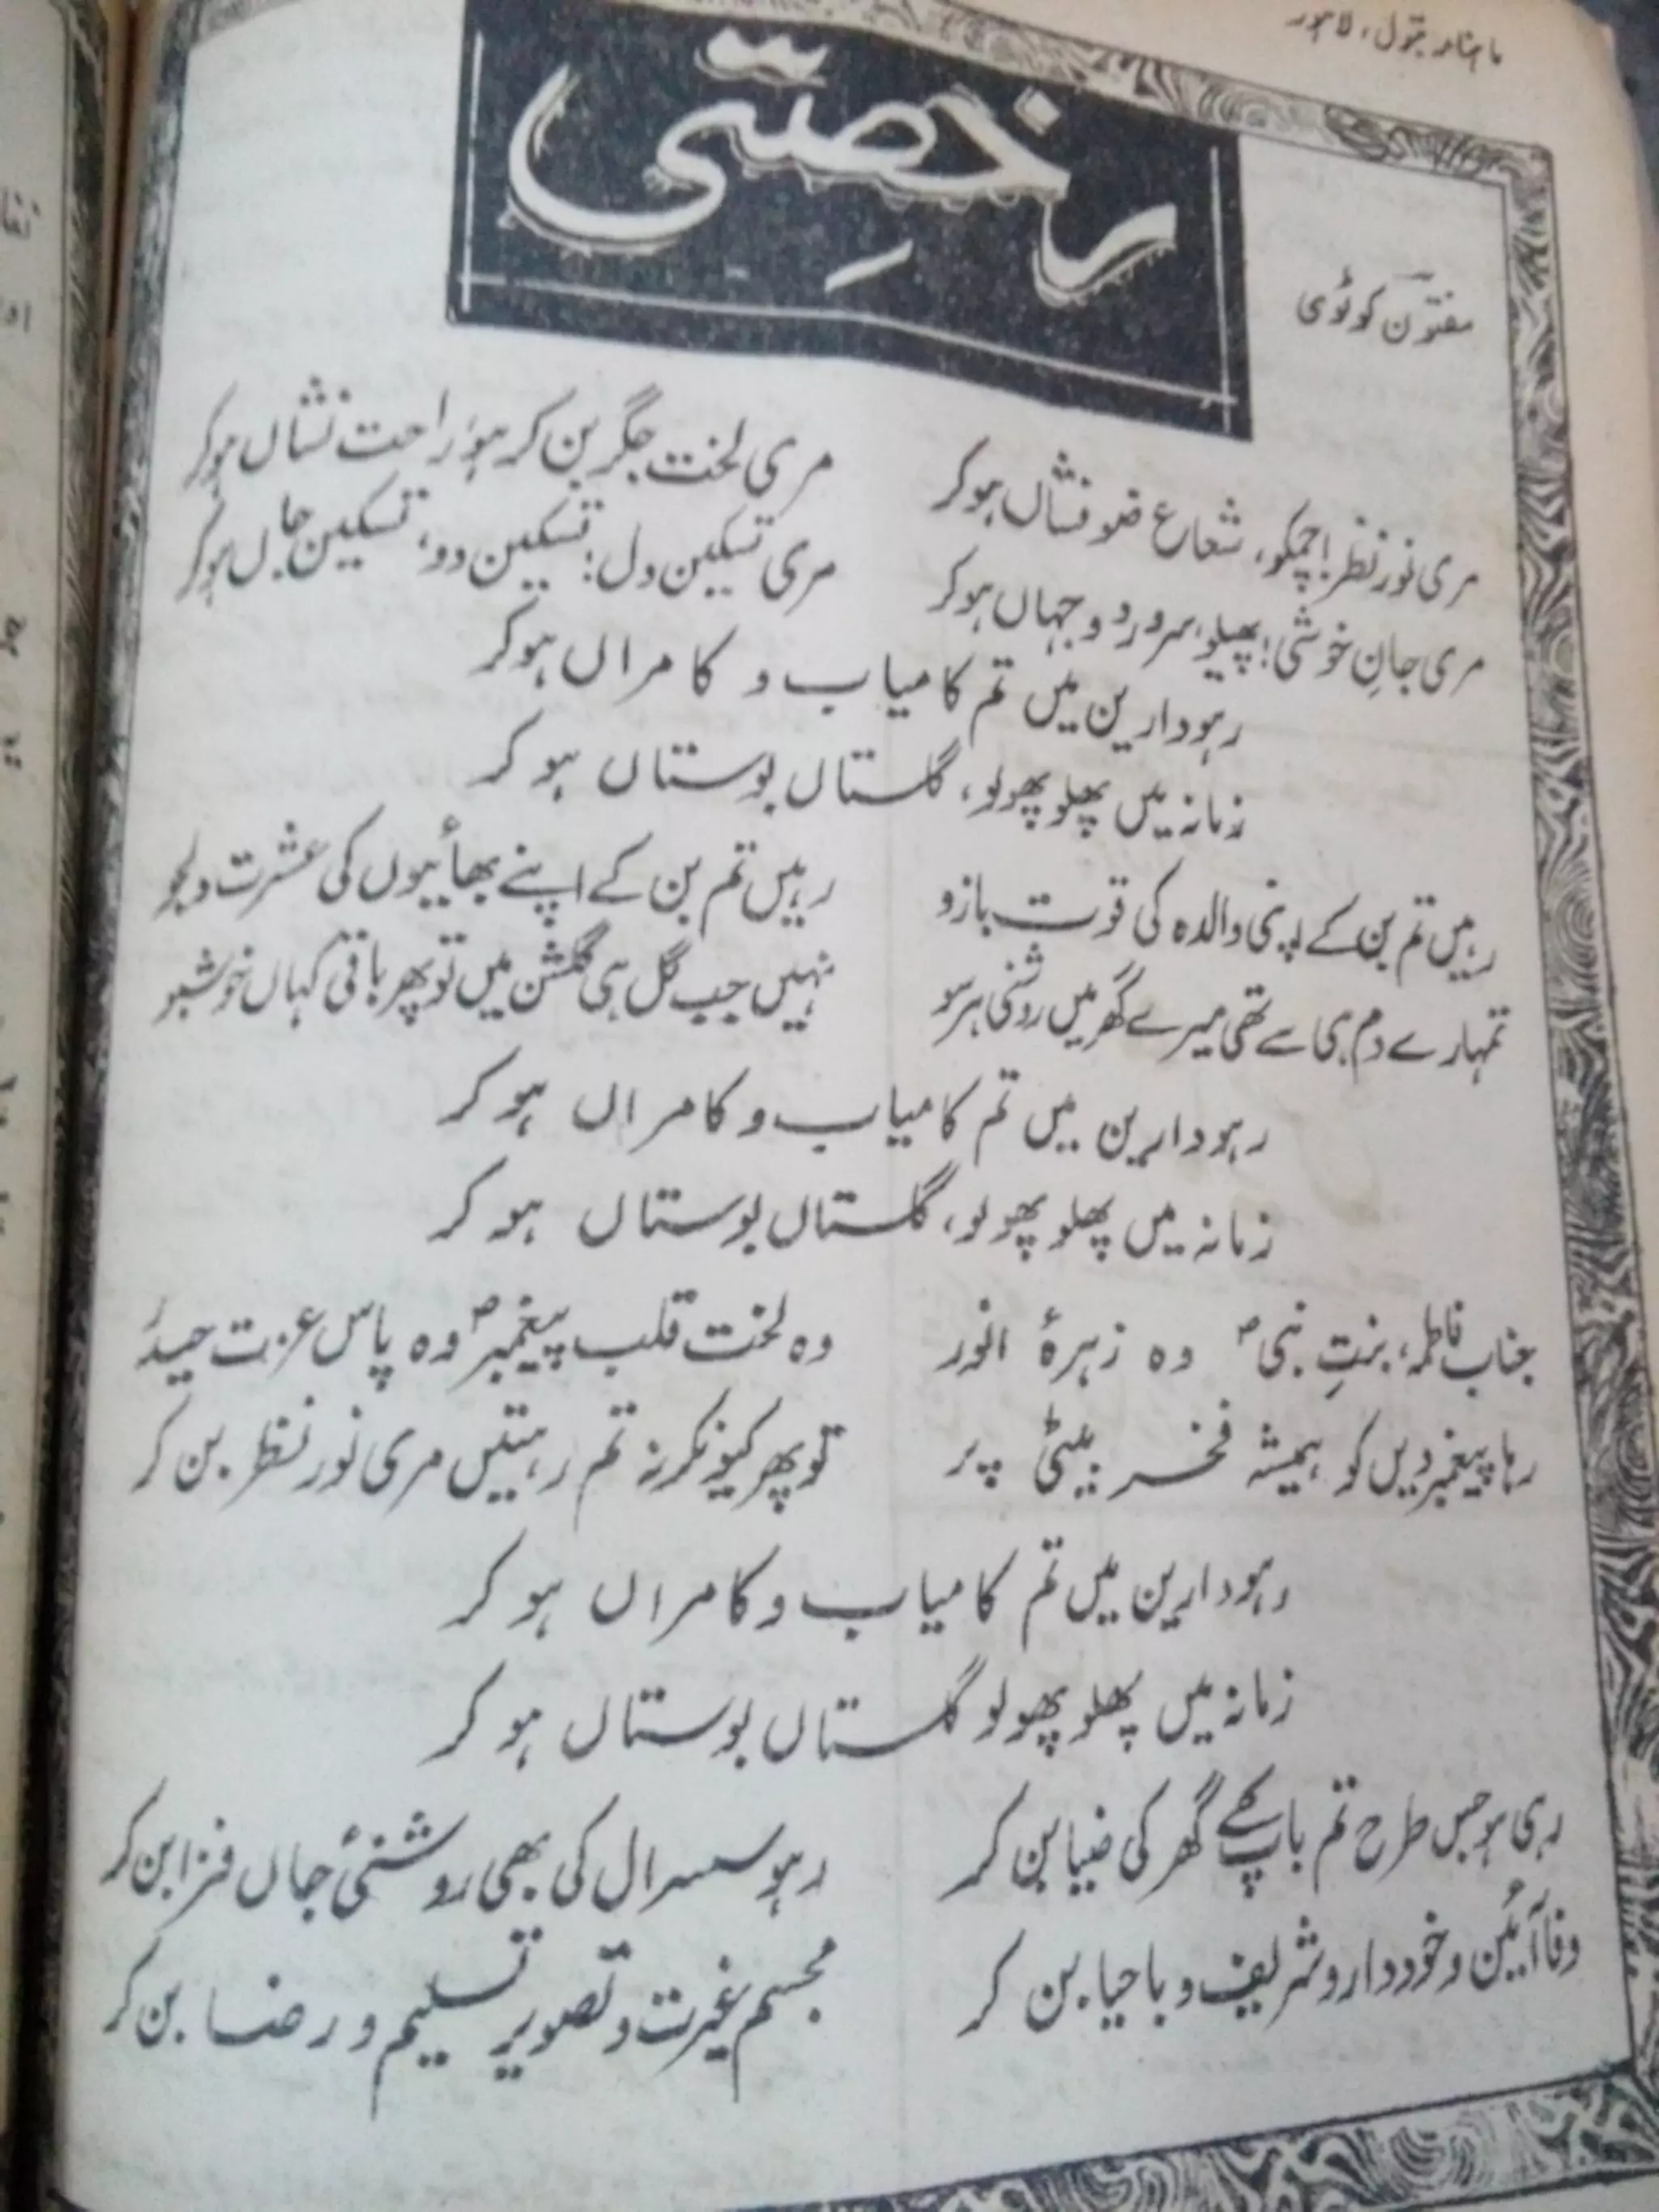 ماہنامہ بتول، لاہور
رخصتی
مفتوں کوٹوی
مری نور نظر! چمکو، شعاع ضو فشاں ہو کر
مری لخت جگر بن کر رہو، راحت نشاں ہو کر
مری جانِ خوشی! پھیلو، سرور دو جہاں ہو کر
مری تسکین دل! تسکین دو، تسکین جاں ہو کر
رہو دارین میں تم کامیاب و کامراں ہو کر
زمانہ میں پھلو پھولو، گلستاں بوستاں ہو کر
رہیں تم بن کے اپنی والدہ کی قوت بازو
رہیں تم بن کے اپنے بھائیوں کی عشرت دلجو
تمہارے دم ہی سے تھی میرے گھر میں روشنی ہر سو
نہیں جب گل ہی گلشن میں تو پھر باقی کہاں خوشبو
رہو دارین میں تم کامیاب و کامراں ہو کر
زمانہ میں پھلو پھولو، گلستاں بوستاں ہو کر
جناب فاطمہ، بنتِ نبیؐ وہ زہرۂ انور
وہ لخت قلب پیغمبرؐ وہ پاس عزت حیدرؓ
رہا پیغمبر دیں کو ہمیشہ فخر بیٹی پر
تو پھر کیونکر نہ تم رہتیں مری نور نظر بن کر
رہو دارین میں تم کامیاب و کامراں ہو کر
زمانہ میں پھلو پھولو گلستاں بوستاں ہو کر
رہی ہو جس طرح تم باپ کے گھر کی ضیا بن کر
رہو سسرال کی بھی روشنیٔ جاں فزا بن کر
وفا آئین و خوددار و شریف و با حیا بن کر
مجسم غیرت و تصویر تسلیم و رضا بن کر